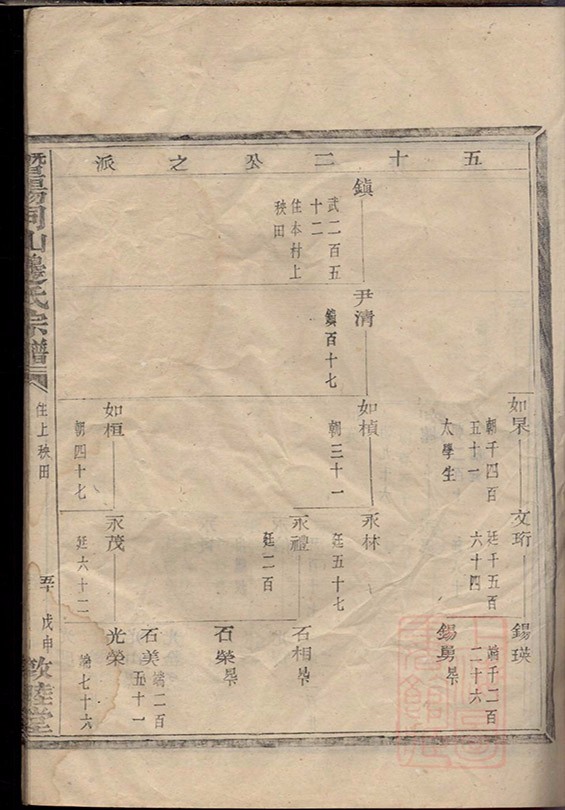 五十二公之派
如杲
朝千四百
五十一
太學生
文珩
廷千五百
六十四
錫瑛
端千二百
二十六
錫勇
鎮
武二百五
十二
住本村上
秧田
尹清
鎮百十七
如楨
朝三十一
永林
廷五十七
永禮
廷二百
石相
石榮
石美
端二百
五十一
如桓
朝四十七
永茂
廷六十二
光榮
端七十六
暨陽同山邊氏宗譜
住上秧田
戊申
敦睦堂